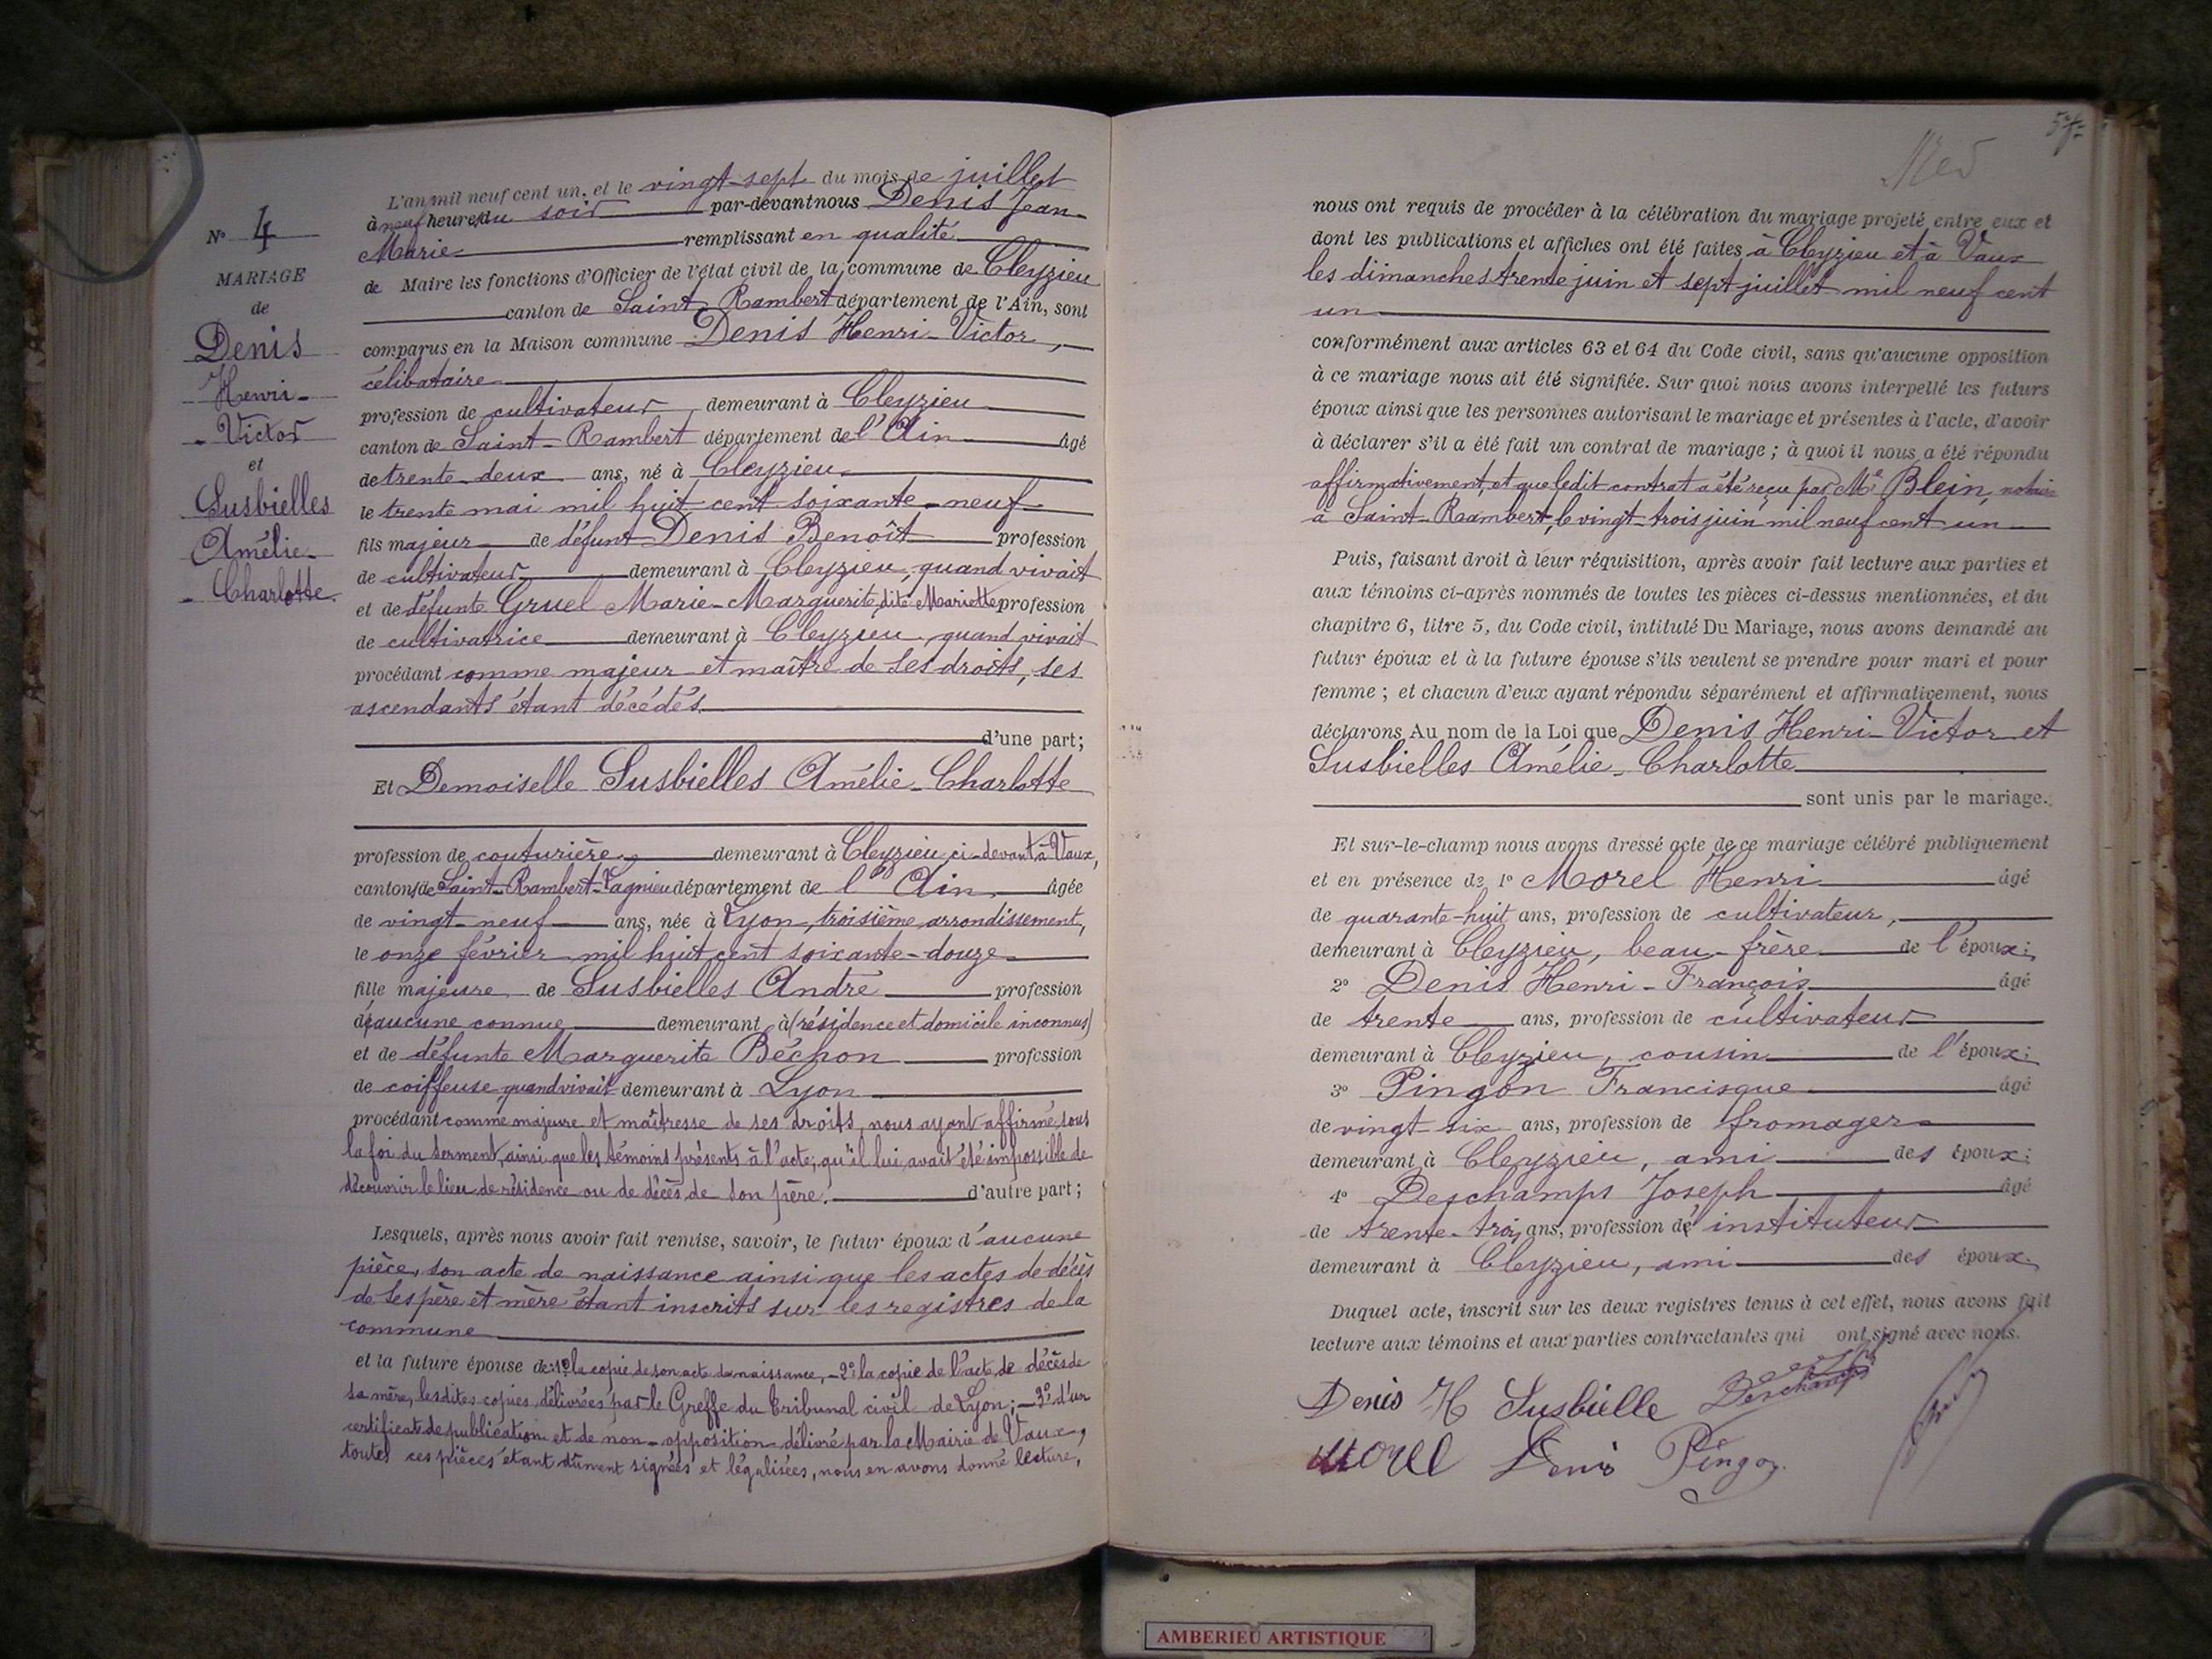 N° 4
MARIAGE
de
Denis
Henri-
- Victor
et
Susbielles
Amélie-
- Charlotte.
L'an mil neuf cent un, et le vingt-sept du mois de juillet
à neuf heures du soir par-devant nous Denis Jean-
Marie remplissant en qualité
de Maire les fonctions d'Officier de l'état civil de la commune de Cleyzieu
canton de Saint-Rambert département de l'Ain, sont
comparus en la Maison commune Denis Henri-Victor,
célibataire
profession de cultivateur demeurant à Cleyzieu
canton de Saint-Rambert département de l'Ain âgé
de trente-deux ans, né à Cleyzieu
le trente mai mil huit cent soixante-neuf
fils majeur de défunt Denis Benoît profession
de cultivateur demeurant à Cleyzieu, quand vivait
et de défunte Gruel Marie-Marguerite, dite Mariette profession
de cultivatrice demeurant à Cleyzieu, quand vivait
procédant comme majeur et maître de ses droits, ses
ascendants étant décédés.
d'une part;
Et Demoiselle Susbielles Amélie-Charlotte
profession de couturière, demeurant à Cleyzieu ci-devant à Vaux,
cantons de Saint-Rambert-Lagnieu département de l'Ain, âgée
de vingt-neuf ans, née à Lyon, troisième arrondissement,
le onze février mil huit cent soixante-douze
fille majeure de Susbielles André profession
d'aucune connue demeurant à (résidence et domicile inconnus)
et de défunte Marguerite Béchon profession
de coiffeuse, quand vivait demeurant à Lyon
procédant comme majeure et maîtresse de ses droits, nous ayant affirmé, sous
la foi du serment, ainsi que les témoins présents à l'acte, qu'il lui avait été impossible de
découvrir le lieu de résidence ou de décès de son père. d'autre part;
Lesquels, après nous avoir fait remise, savoir, le futur époux d'aucune
pièce, son acte de naissance ainsi que les actes de décès
de ses père et mère étant inscrits sur les registres de la
commune
et la future épouse de: 1° la copie de son acte de naissance, - 2° la copie de l'acte de décès de
sa mère, lesdites copies délivrées par le Greffe du Tribunal civil de Lyon; - 3° d'un
certificat de publication et de non-opposition délivré par la Mairie de Vaux,
toutes ces pièces étant dûment signées et légalisées, nous en avons donné lecture,
57
nous ont requis de procéder à la célébration du mariage projeté entre eux et
dont les publications et affiches ont été faites à Cleyzieu et à Vaux
les dimanches trente juin et sept juillet mil neuf cent
un
conformément aux articles 63 et 64 du Code civil, sans qu'aucune opposition
à ce mariage nous ait été signifiée. Sur quoi nous avons interpellé les futurs
époux ainsi que les personnes autorisant le mariage et présentes à l'acte, d'avoir
à déclarer s'il a été fait un contrat de mariage; à quoi il nous a été répondu
affirmativement, et que ledit contrat a été reçu par Me Blein, notaire
à Saint-Rambert, le vingt-trois juin mil neuf cent un
Puis, faisant droit à leur réquisition, après avoir fait lecture aux parties et
aux témoins ci-après nommés de toutes les pièces ci-dessus mentionnées, et du
chapitre 6, titre 5, du Code civil, intitulé Du Mariage, nous avons demandé au
futur époux et à la future épouse s'ils veulent se prendre pour mari et pour
femme; et chacun d'eux ayant répondu séparément et affirmativement, nous
déclarons Au nom de la Loi que Denis Henri-Victor et
Susbielles Amélie-Charlotte
sont unis par le mariage.
Et sur-le-champ nous avons dressé acte de ce mariage célébré publiquement
et en présence de 1° Morel Henri âgé
de quarante-huit ans, profession de cultivateur,
demeurant à Cleyzieu, beau-frère de l'époux;
2° Denis Henri-François âgé
de trente ans, profession de cultivateur
demeurant à Cleyzieu, cousin de l'époux;
3° Pingon Francisque âgé
de vingt-six ans, profession de fromager
demeurant à Cleyzieu, ami des époux;
4° Deschamps Joseph âgé
de trente-trois ans, profession d'instituteur
demeurant à Cleyzieu, ami des époux.
Duquel acte, inscrit sur les deux registres tenus à cet effet, nous avons fait
lecture aux témoins et aux parties contractantes qui ont signé avec nous.
Denis H Susbielle Deschamps
Morel Denis Pingon
AMBERIEU ARTISTIQUE